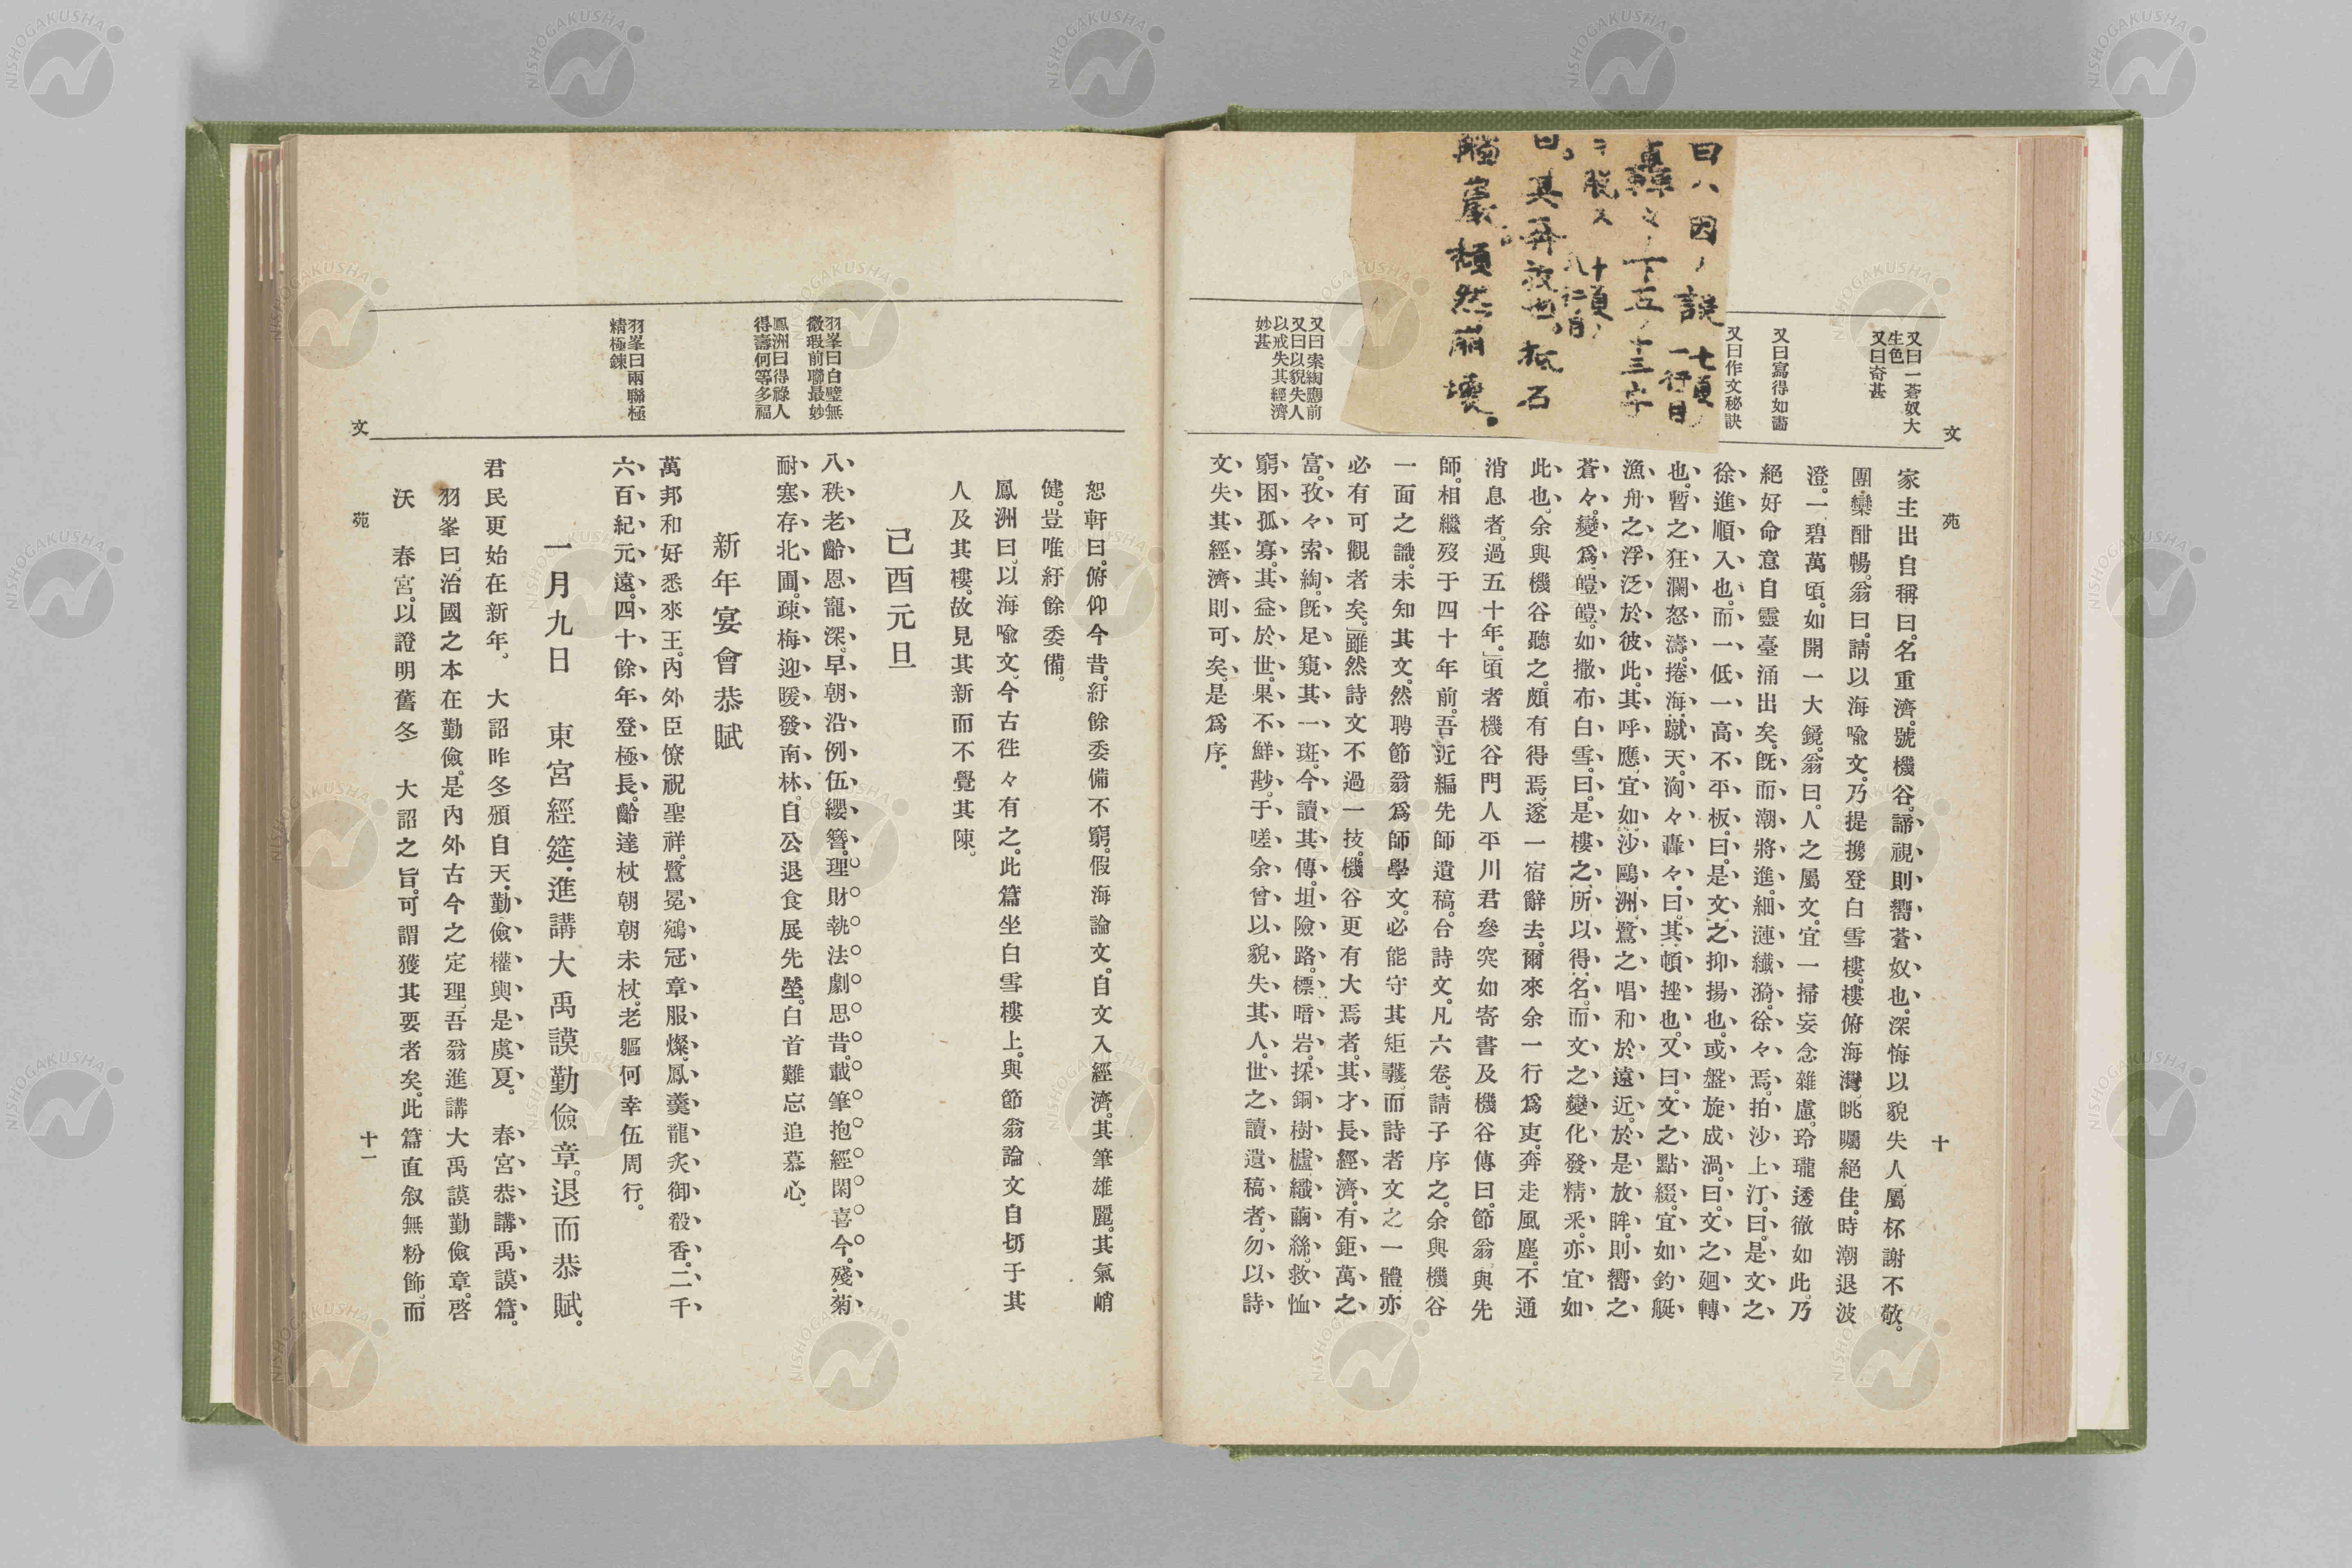 文苑
十
又曰一蒼奴大
生色
又曰奇甚
又曰寫得如畵
又曰作文秘訣
又曰索綯應前
又曰以貌失人
以戒失其經濟
妙甚
曰ハ因ノ誤 七頁
一行目
轟々ノ下五ノ十三字
ヲ脱ス 十頁
八行目
曰。其奔放也。砥石
巖頽然崩壞。
家主出自稱曰。名重濟。號機谷。諦視則嚮蒼奴也。深悔以貌失人。屬杯謝不敬。
團欒酣暢。翁曰。請以海喩文。乃提携登白雪樓。樓俯海灣。眺矚絕佳。時潮退波
澄。一碧萬頃。如開一大鏡。翁曰。人之屬文。宜一掃妄念雜慮。玲瓏透徹如此。乃
絕好命意自靈臺涌出矣。旣而潮將進。細漣纖漪。徐々焉。拍沙上汀。曰。是文之
徐進順入也。而一低一高不平板。曰。是文之抑揚也。或盤旋成渦。曰。文之廻轉
也。暫之狂瀾怒濤。捲海蹴天。洶々轟々。曰。其頓挫也。又曰。文之點綴。宜如釣艇
漁舟之浮泛於彼此。其呼應。宜如沙鷗洲鷺之唱和於遠近。於是放眸。則嚮之
蒼々。變爲皚皚。如撒布白雪。曰。是樓之所以得名。而文之變化發精釆。亦宜如
此也。余與機谷聽之。頗有得焉。遂一宿辭去。爾來余一行爲吏。奔走風塵。不通
消息者。過五十年。頃者機谷門人平川君參突如寄書及機谷傳曰。節翁與先
師。相繼歿于四十年前。吾近編先師遺稿。合詩文。凡六卷。請子序之。余與機谷
一面之識。未知其文。然聘節翁爲師學文。必能守其矩矱。而詩者文之一體。亦
必有可觀者矣。雖然詩文不過一技。機谷更有大焉者。其才長經濟。有鉅萬之
富。孜々索綯。旣足窺其一斑。今讀其傳。坦險路。標暗岩。採銅樹櫨織繭絲。救恤
窮困孤寡。其益於世。果不鮮尠。于嗟余曾以貌失其人。世之讀遺稿者。勿以詩
文失其經濟則可矣。是爲序。
恕軒曰。俯仰今昔。紆餘委備不窮。假海論文。自文入經濟。其筆雄麗。其氣峭
健。豈唯紆餘委備。
鳳洲曰。以海喩文。今古徃々有之。此篇坐白雪樓上。與節翁論文自切于其
人及其樓。故見其新而不覺其陳。
己酉元旦
羽峯曰白璧無
微瑕前聯最妙
鳳洲曰得祿人
得壽何等多福
八秩老齡恩寵深。早朝沿例伍纓簪。理財執法劇思昔。載筆抱經閑喜今。殘菊
耐塞存北圃。疎梅迎暖發南林。自公退食展先塋。白首難忘追慕心。
新年宴會恭賦
羽峯曰兩聯極
精極鍊
萬邦和好悉來王。內外臣僚祝聖祥。鷺冕鵷冠章服燦。鳳羹龍炙御殽香。二千
六百紀元遠。四十餘年登極長。齡達杖朝朝未杖。老軀何幸伍周行。
一月九日 東宮經筵。進講大禹謨勤儉章。退而恭賦。
君民更始在新年。 大詔昨冬頒自天。勤儉權輿是虞夏。 春宮恭講禹謨篇。
羽峯曰。治國之本在勤儉。是內外古今之定理。吾翁進講大禹謨勤儉章。啓
沃 春宮。以證明舊冬 大詔之旨。可謂獲其要者矣。此篇直敍無粉飾。而
文苑
十一
NISHOGAKUSHA